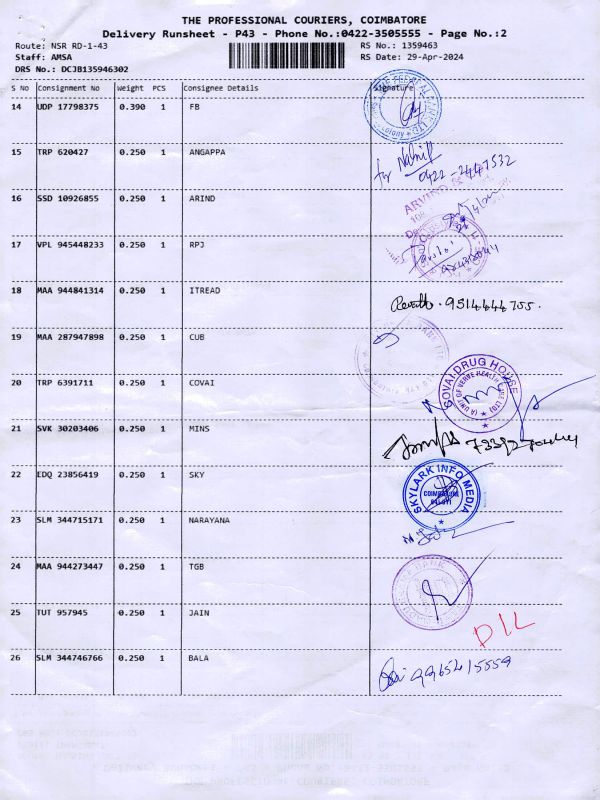 THE PROFESSIONAL COURIERS, COIMBATORE
Delivery Runsheet - P43 - Phone No.:0422-3505555 - Page No.:2
Route: NSR RD-1-43 RS No.: 1359463
Staff: AMSA RS Date: 29-Apr-2024
DRS No.: DCJB135946302
S No Consignment No Weight PCS Consignee Details Signature
14 UDP 17798375 0.390 1 FB
15 TRP 620427 0.250 1 ANGAPPA
0422-2447532
16 SSD 10926855 0.250 1 ARIND
ARVIND
17 VPL 945448233 0.250 1 RPJ
18 MAA 944841314 0.250 1 ITREAD
9514444755.
19 MAA 287947898 0.250 1 CUB
20 TRP 6391711 0.250 1 COVAI
COVAI DRUG HOUSE
21 SVK 30203406 0.250 1 MINS
22 EDQ 23856419 0.250 1 SKY
SKYLARK INFO MEDIA
COIMBATORE
23 SLM 344715171 0.250 1 NARAYANA
24 MAA 944273447 0.250 1 TGB
25 TUT 957945 0.250 1 JAIN
D/L
26 SLM 344746766 0.250 1 BALA
9965415559